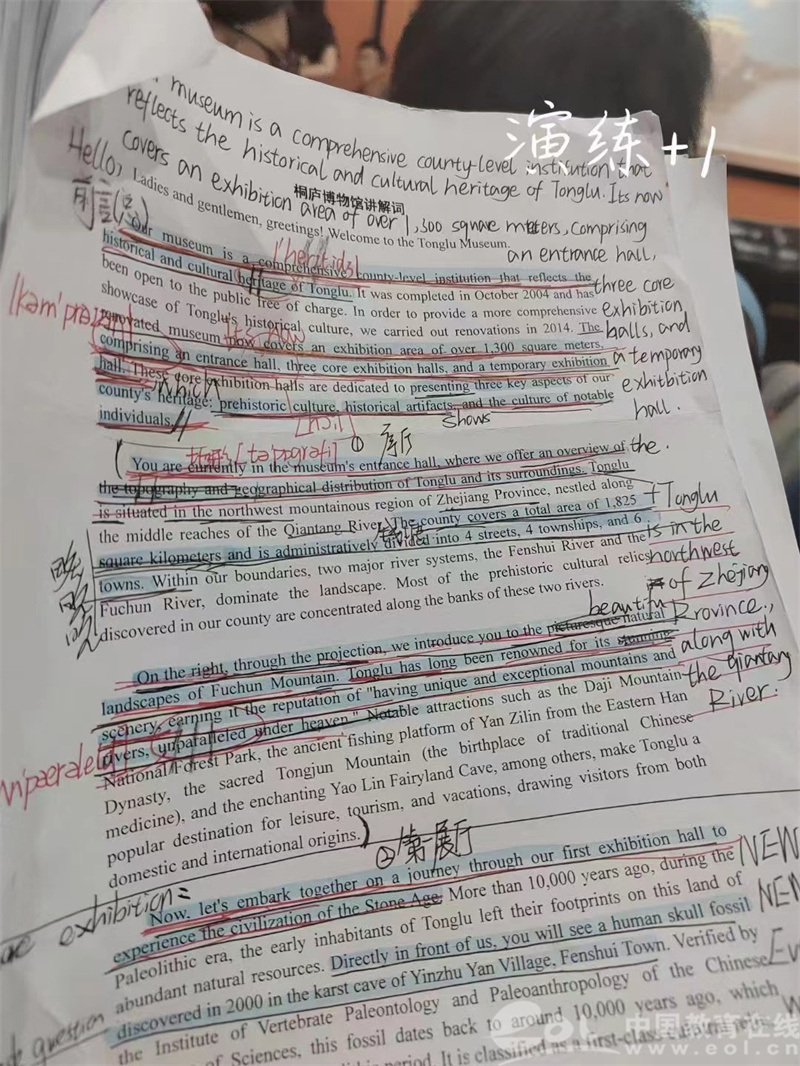 演练+1
museum is a comprehensive county-level institution that
reflects the historical and cultural heritage of Tonglu. Its now
covers an exhibition area of over 1,300 square meters, comprising
an entrance hall,
three core
exhibition
halls, and
a temporary
exhibition
hall.
Hello,
前言
桐庐博物馆讲解词
Ladies and gentlemen, greetings! Welcome to the Tonglu Museum.
Our museum is a comprehensive county-level institution that reflects the
historical and cultural heritage of Tonglu. It was completed in October 2004 and has
been open to the public free of charge. In order to provide a more comprehensive
showcase of Tonglu's historical culture, we carried out renovations in 2014. The
renovated museum now covers an exhibition area of over 1,300 square meters,
comprising an entrance hall, three core exhibition halls, and a temporary exhibition
hall. These core exhibition halls are dedicated to presenting three key aspects of our
county's heritage: prehistoric culture, historical artifacts, and the culture of notable
individuals.
shows
① 展厅
You are currently in the museum's entrance hall, where we offer an overview of the
the topography and geographical distribution of Tonglu and its surroundings. Tonglu
is situated in the northwest mountainous region of Zhejiang Province, nestled along
the middle reaches of the Qiantang River. The county covers a total area of 1,825
square kilometers and is administratively divided into 4 streets, 4 townships, and 6
towns. Within our boundaries, two major river systems, the Fenshui River and the
Fuchun River, dominate the landscape. Most of the prehistoric cultural relics
discovered in our county are concentrated along the banks of these two rivers.
Tonglu
is in the
northwest
of Zhejiang
Province.,
along with
the Qiantang
River.
beautiful
On the right, through the projection, we introduce you to the picturesque natural
landscapes of Fuchun Mountain. Tonglu has long been renowned for its stunning
scenery, earning it the reputation of "having unique and exceptional mountains and
rivers, unparalleled under heaven." Notable attractions such as the Daji Mountain
National Forest Park, the ancient fishing platform of Yan Zilin from the Eastern Han
Dynasty, the sacred Tongjun Mountain (the birthplace of traditional Chinese
medicine), and the enchanting Yao Lin Fairyland Cave, among others, make Tonglu a
popular destination for leisure, tourism, and vacations, drawing visitors from both
domestic and international origins.
② 第一展厅
exhibition=
Now, let's embark together on a journey through our first exhibition hall to
experience the civilization of the Stone Age. More than 10,000 years ago, during the
Paleolithic era, the early inhabitants of Tonglu left their footprints on this land of
abundant natural resources. Directly in front of us, you will see a human skull fossil
discovered in 2000 in the karst cave of Yinzhu Yan Village, Fenshui Town. Verified by
the Institute of Vertebrate Paleontology and Paleoanthropology of the Chinese
of Sciences, this fossil dates back to around 10,000 years ago, which
period. It is classified as a first-class
NEW
question
中国教育在线
www.eol.cn